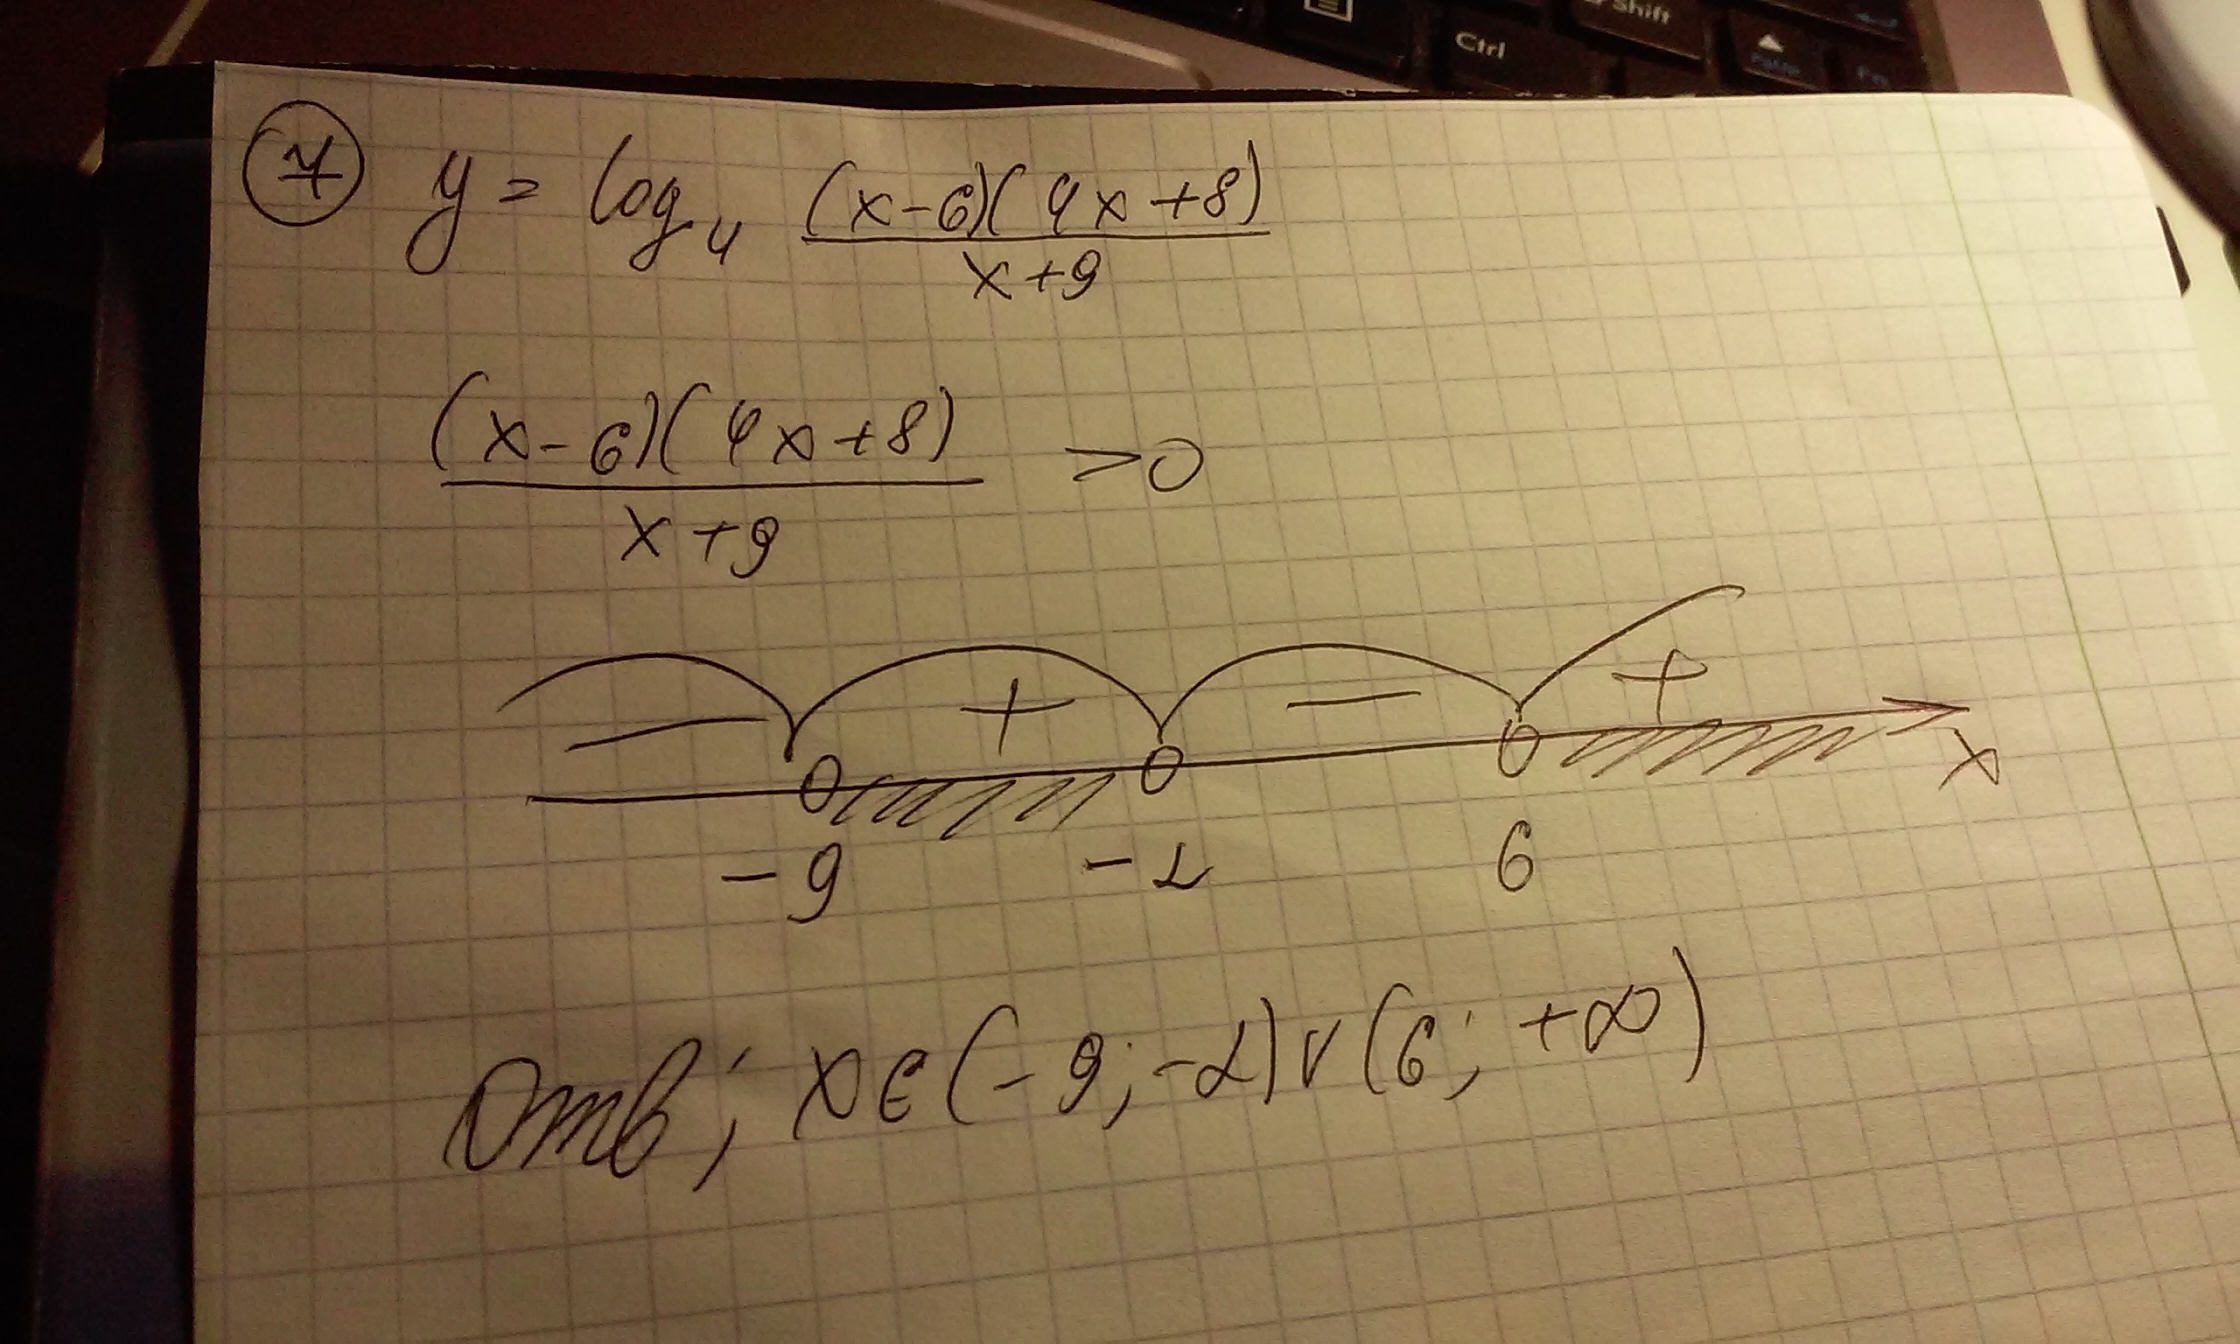 Shift
Ctrl
Fn
7 y = log₄ (x-6)(4x+8)
x+9
(x-6)(4x+8) >0
x+9
− + − +
x
-9 -2 6
Отв; x∈(-9;-2)∨(6; +∞)